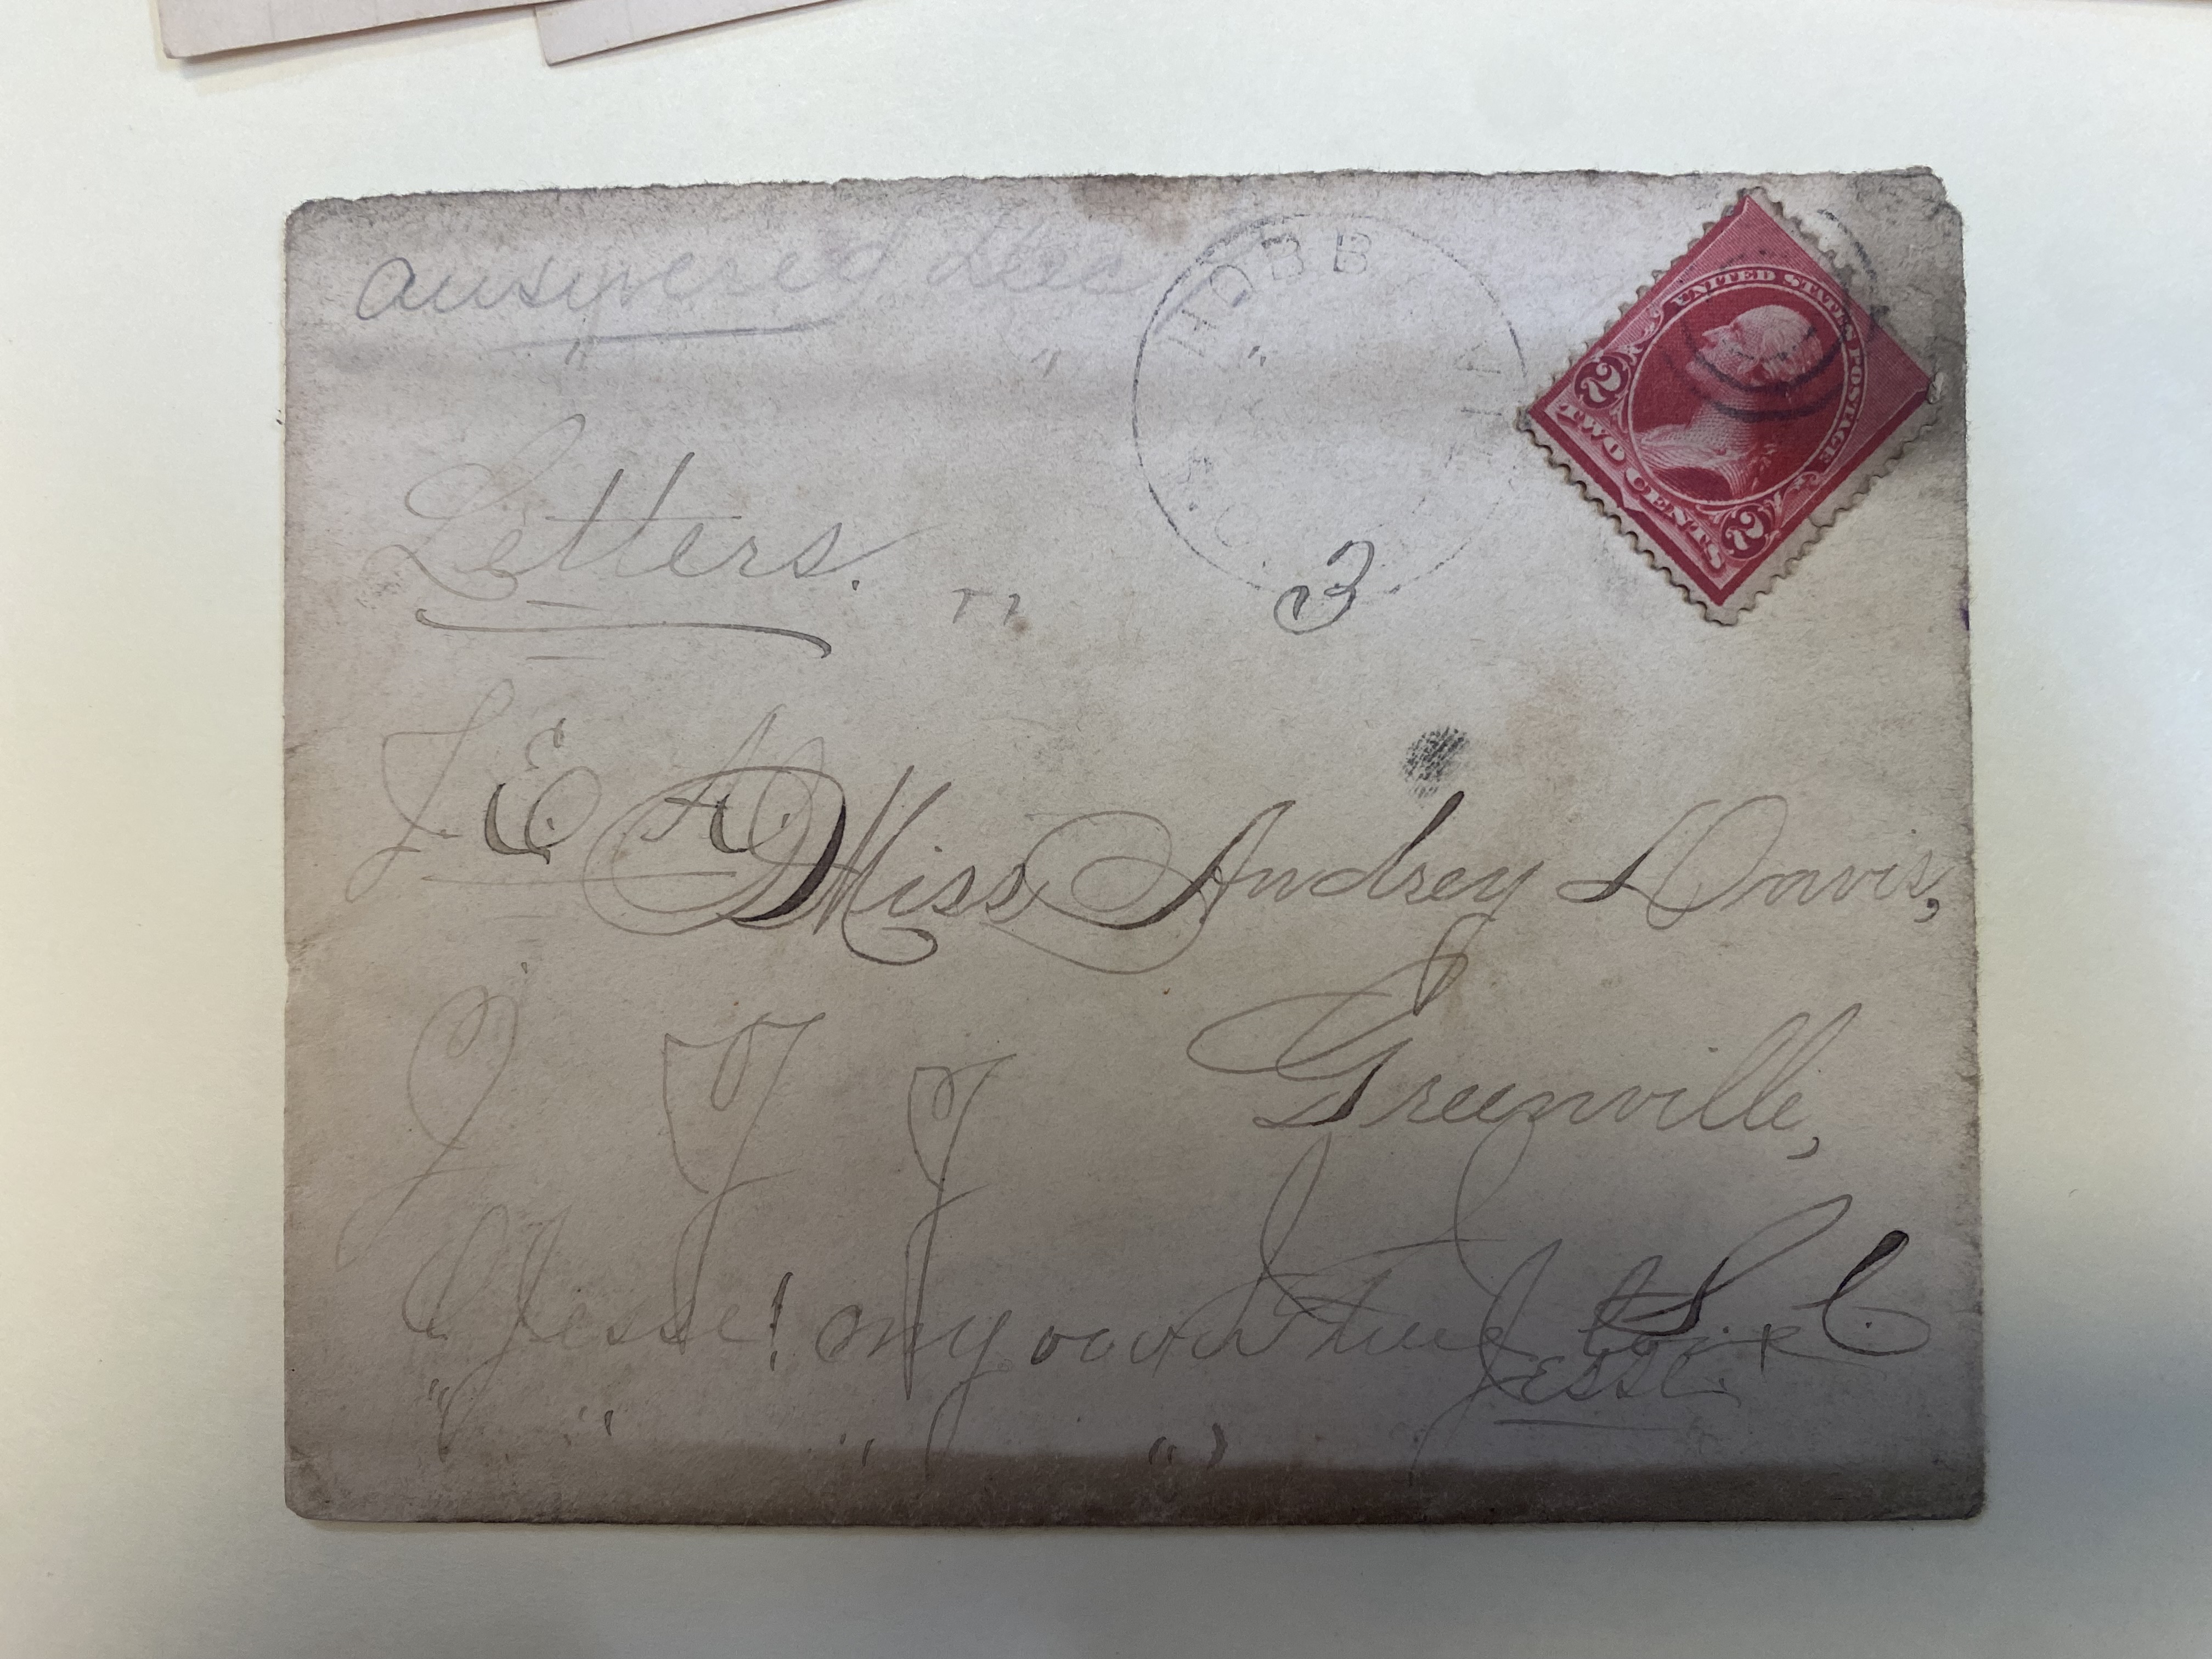 answered Dec
HOBB
UNITED STATES POSTAGE
2 TWO CENTS 2
Letters.
3
J. E. A.
Miss Audrey Davis,
Greenville,
S. C.
J J J
Jesse! my own true
Jesse.